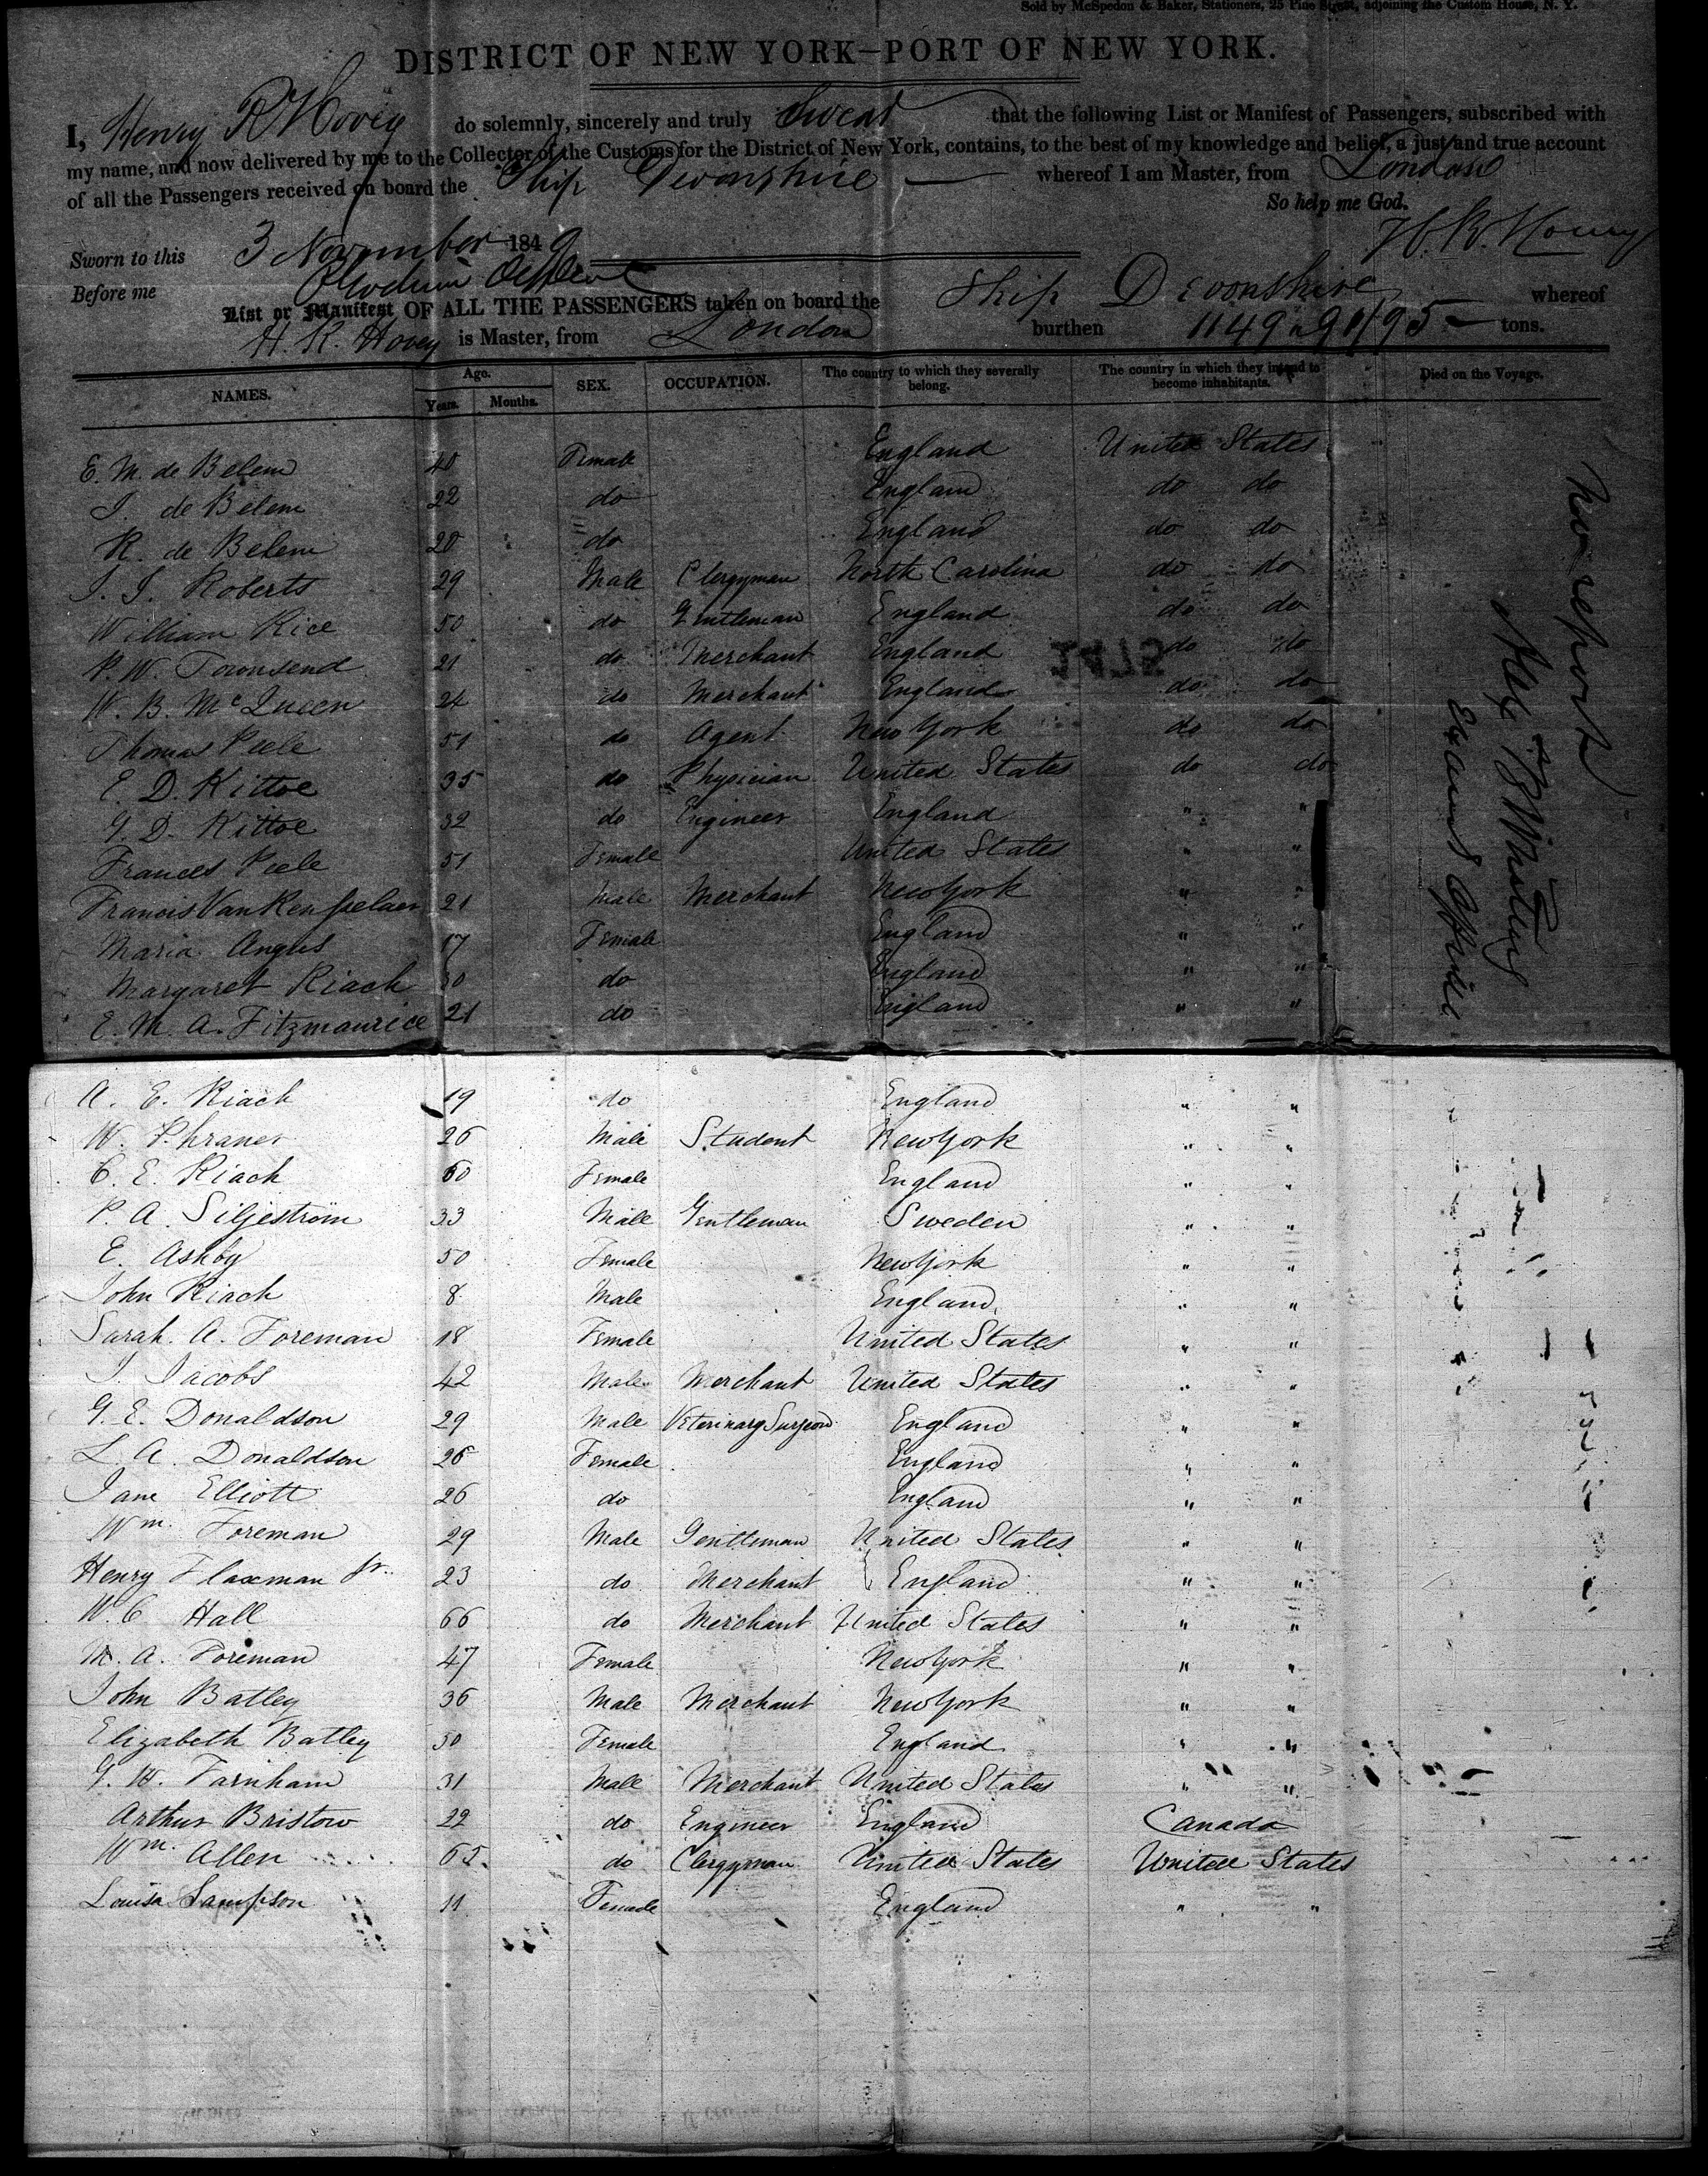 Sold by McSpedon & Baker, Stationers, 25 Pine Street, adjoining the Custom House, N. Y.
DISTRICT OF NEW YORK—PORT OF NEW YORK.
I, Henry R Hovey do solemnly, sincerely and truly Swear that the following List or Manifest of Passengers, subscribed with
my name, and now delivered by me to the Collector of the Customs for the District of New York, contains, to the best of my knowledge and belief, a just and true account
of all the Passengers received on board the Ship Devonshire whereof I am Master, from London
So help me God.
Sworn to this 3 November 1849 H. R. Hovey
Before me
List or Manifest OF ALL THE PASSENGERS taken on board the Ship Devonshire whereof
H. R. Hovey is Master, from London burthen 1149 90/95 tons.
NAMES. Age. Years. Months. SEX. OCCUPATION. The country to which they severally belong. The country in which they intend to become inhabitants. Died on the Voyage.
E. M. de Belem 40 Female England United States
J. de Belem 22 do England do do
R. de Belem 20 do England do do
J. J. Roberts 29 Male Clergyman North Carolina do do
William Rice 50 do Gentleman England do do
P. W. Townsend 21 do Merchant England do do
W. B. McQueen 24 do Merchant England do do
Thomas Peele 51 do Agent New York do do
E. D. Kittoe 35 do Physician United States do do
G. D. Kittoe 32 do Engineer England " "
Frances Peele 51 Female United States " "
Francis Van Rensselaer 21 Male Merchant New York " "
Maria Angus 17 Female England " "
Margaret Riach 30 do England " "
E. M. A. Fitzmaurice 21 do England " "
A. E. Riach 19 do England " "
W. Phraner 26 Male Student New York " "
C. E. Riach 60 Female England " "
P. A. Siljeström 33 Male Gentleman Sweden " "
E. Ashby 50 Female New York " "
John Riach 8 Male England " "
Sarah. A. Foreman 18 Female United States " "
J. Jacobs 42 Male Merchant United States " "
G. E. Donaldson 29 Male Veterinary Surgeon England " "
L. A. Donaldson 26 Female England " "
Jane Elliott 26 do England " "
Wm. Foreman 29 Male Gentleman United States " "
Henry Flaxman Jr. 23 do Merchant England " "
W. C Hall 66 do Merchant United States " "
M. A. Foreman 47 Female New York " "
John Batley 36 Male Merchant New York " "
Elizabeth Batley 50 Female England " "
G. W. Farnham 31 Male Merchant United States " "
Arthur Bristow 22 do Engineer England Canada
Wm. Allen 65 do Clergyman United States United States
Louisa Sampson 11 Female England " "
No report